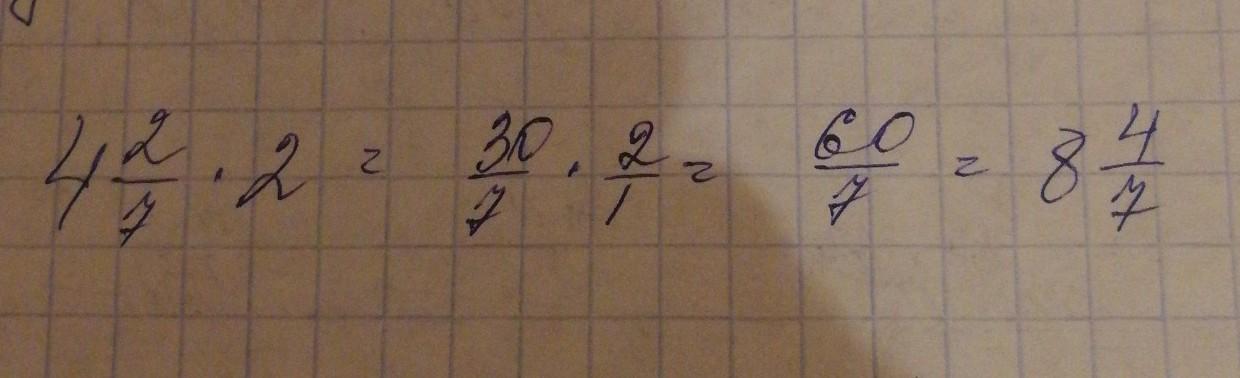 4 2/7 · 2 = 30/7 · 2/1 = 60/7 = 8 4/7